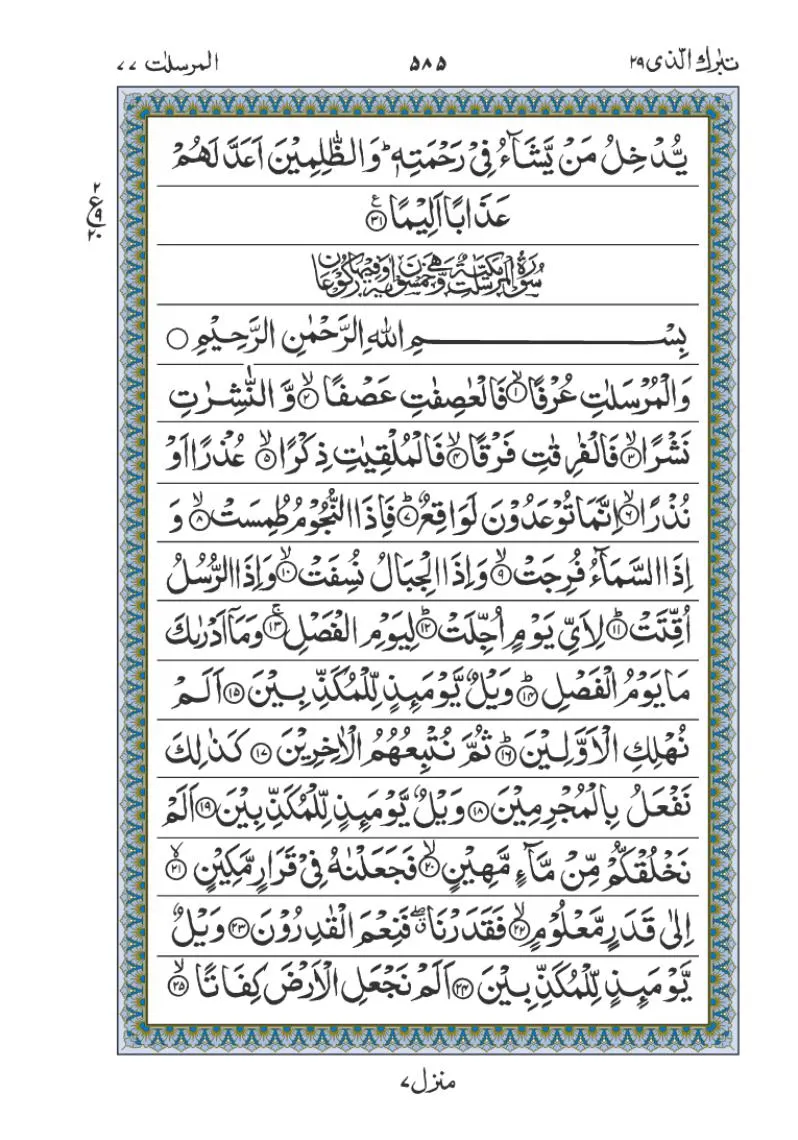 تبٰرك الّذى ٢٩ ۵۸۵ المرسلٰت ۷۷
يُّدۡخِلُ مَنۡ يَّشَآءُ فِىۡ رَحۡمَتِهٖ‌ؕ وَالظّٰلِمِيۡنَ اَعَدَّ لَهُمۡ
عَذَابًا اَلِيۡمًا ﴿۳۱﴾ ع
۲
ع ۹
۲۰
سُوۡرَةُ الۡمُرۡسَلٰتِ مَكِّيَّةٌ وَّهِىَ خَمۡسُوۡنَ اٰيَةً وَّفِيۡهَا رُكُوۡعَانِ
بِسۡمِ اللهِ الرَّحۡمٰنِ الرَّحِيۡمِ ○
وَالۡمُرۡسَلٰتِ عُرۡفًا ۙ‏﴿۱﴾ فَالۡعٰصِفٰتِ عَصۡفًا ۙ‏﴿۲﴾ وَّالنّٰشِرٰتِ
نَشۡرًا ۙ‏﴿۳﴾ فَالۡفٰرِقٰتِ فَرۡقًا ۙ‏﴿۴﴾ فَالۡمُلۡقِيٰتِ ذِكۡرًا ۙ‏﴿۵﴾ عُذۡرًا اَوۡ
نُذۡرًا ۙ‏﴿۶﴾ اِنَّمَا تُوۡعَدُوۡنَ لَوَاقِعٌ ؕ‏﴿۷﴾ فَاِذَا النُّجُوۡمُ طُمِسَتۡ ۙ‏﴿۸﴾ وَ
اِذَا السَّمَآءُ فُرِجَتۡ ۙ‏﴿۹﴾ وَاِذَا الۡجِبَالُ نُسِفَتۡ ۙ‏﴿۱۰﴾ وَاِذَا الرُّسُلُ
اُقِّتَتۡ ؕ‏﴿۱۱﴾ لِاَىِّ يَوۡمٍ اُجِّلَتۡ ؕ‏﴿۱۲﴾ لِيَوۡمِ الۡفَصۡلِ‌ ۚ‏﴿۱۳﴾ وَمَاۤ اَدۡرٰٮكَ
مَا يَوۡمُ الۡفَصۡلِ ؕ‏﴿۱۴﴾ وَيۡلٌ يَّوۡمَٮِٕذٍ لِّلۡمُكَذِّبِيۡنَ ﴿۱۵﴾ اَلَمۡ
نُهۡلِكِ الۡاَوَّلِيۡنَ ؕ‏﴿۱۶﴾ ثُمَّ نُتۡبِعُهُمُ الۡاٰخِرِيۡنَ ﴿۱۷﴾ كَذٰلِكَ
نَفۡعَلُ بِالۡمُجۡرِمِيۡنَ ﴿۱۸﴾ وَيۡلٌ يَّوۡمَٮِٕذٍ لِّلۡمُكَذِّبِيۡنَ ﴿۱۹﴾ اَلَمۡ
نَخۡلُقۡكُّمۡ مِّنۡ مَّآءٍ مَّهِيۡنٍ ۙ‏﴿۲۰﴾ فَجَعَلۡنٰهُ فِىۡ قَرَارٍ مَّكِيۡنٍ ۙ‏﴿۲۱﴾
اِلٰى قَدَرٍ مَّعۡلُوۡمٍ ۙ‏﴿۲۲﴾ فَقَدَرۡنَا ‌ۖ فَنِعۡمَ الۡقٰدِرُوۡنَ ﴿۲۳﴾ وَيۡلٌ
يَّوۡمَٮِٕذٍ لِّلۡمُكَذِّبِيۡنَ ﴿۲۴﴾ اَلَمۡ نَجۡعَلِ الۡاَرۡضَ كِفَاتًا ۙ‏﴿۲۵﴾
منزل ۷